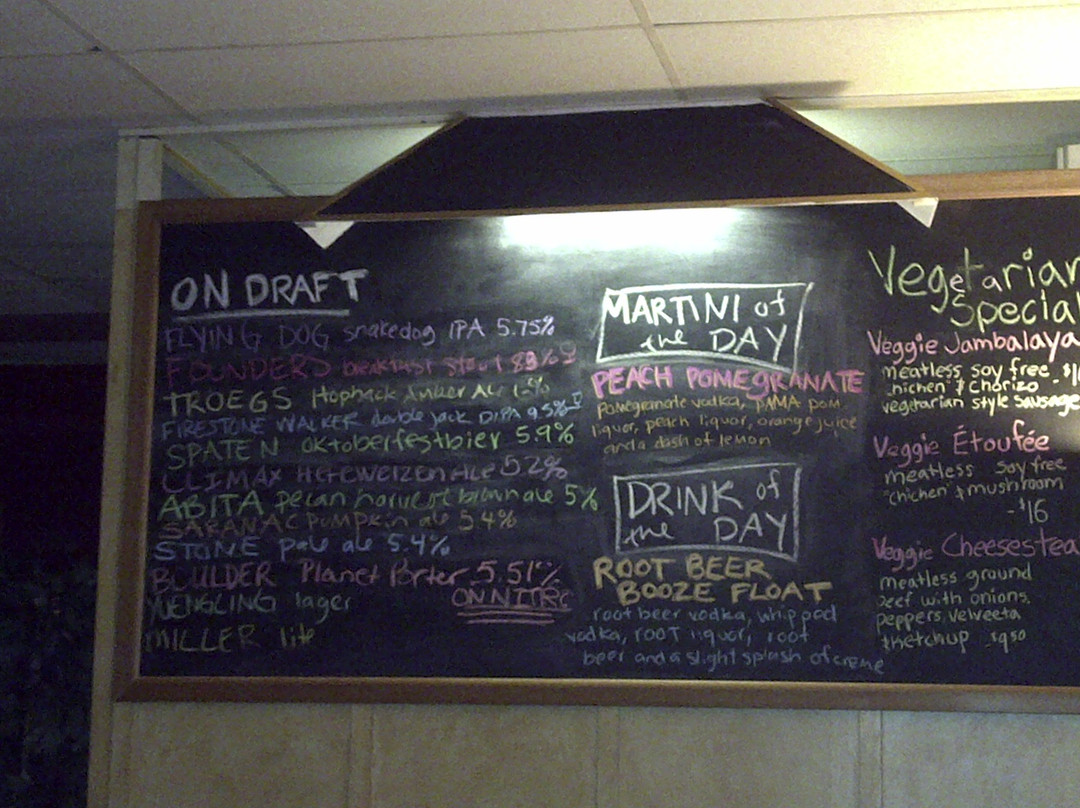 ON DRAFT
FLYING DOG snakedog IPA 5.75%
FOUNDERS breakfast stout 8.3%
TROEGS Hopback Amber Ale
FIRESTONE WALKER double jack DIPA 9.5%
SPATEN Oktoberfestbier 5.9%
CLIMAX HEFEWEIZEN Ale 5.2%
ABITA pecan harvest brown ale 5%
SARANAC Pumpkin ale 5.4%
STONE pale ale 5.4%
BOULDER Planet Porter 5.51%
ON NITRO
YUENGLING lager
MILLER lite
MARTINI of
the DAY
PEACH POMEgRANATE
Pomegranate vodka, PAMA pom
liquor, peach liquor, orange juice
and a dash of lemon
DRINK of
the DAY
ROOT BEER
BOOZE FLOAT
root beer vodka, whipped
vodka, ROOT liquor, root
beer and a slight splash of creme
Vegetarian
Special
Veggie Jambalaya
meatless soy free
"chicken" & chorizo
vegetarian style sausage
Veggie Étoufée
meatless soy free
"chicken" & mushroom
- $16
Veggie Cheesestea
meatless ground
beef with onions,
peppers, velveeta
& ketchup $9.50